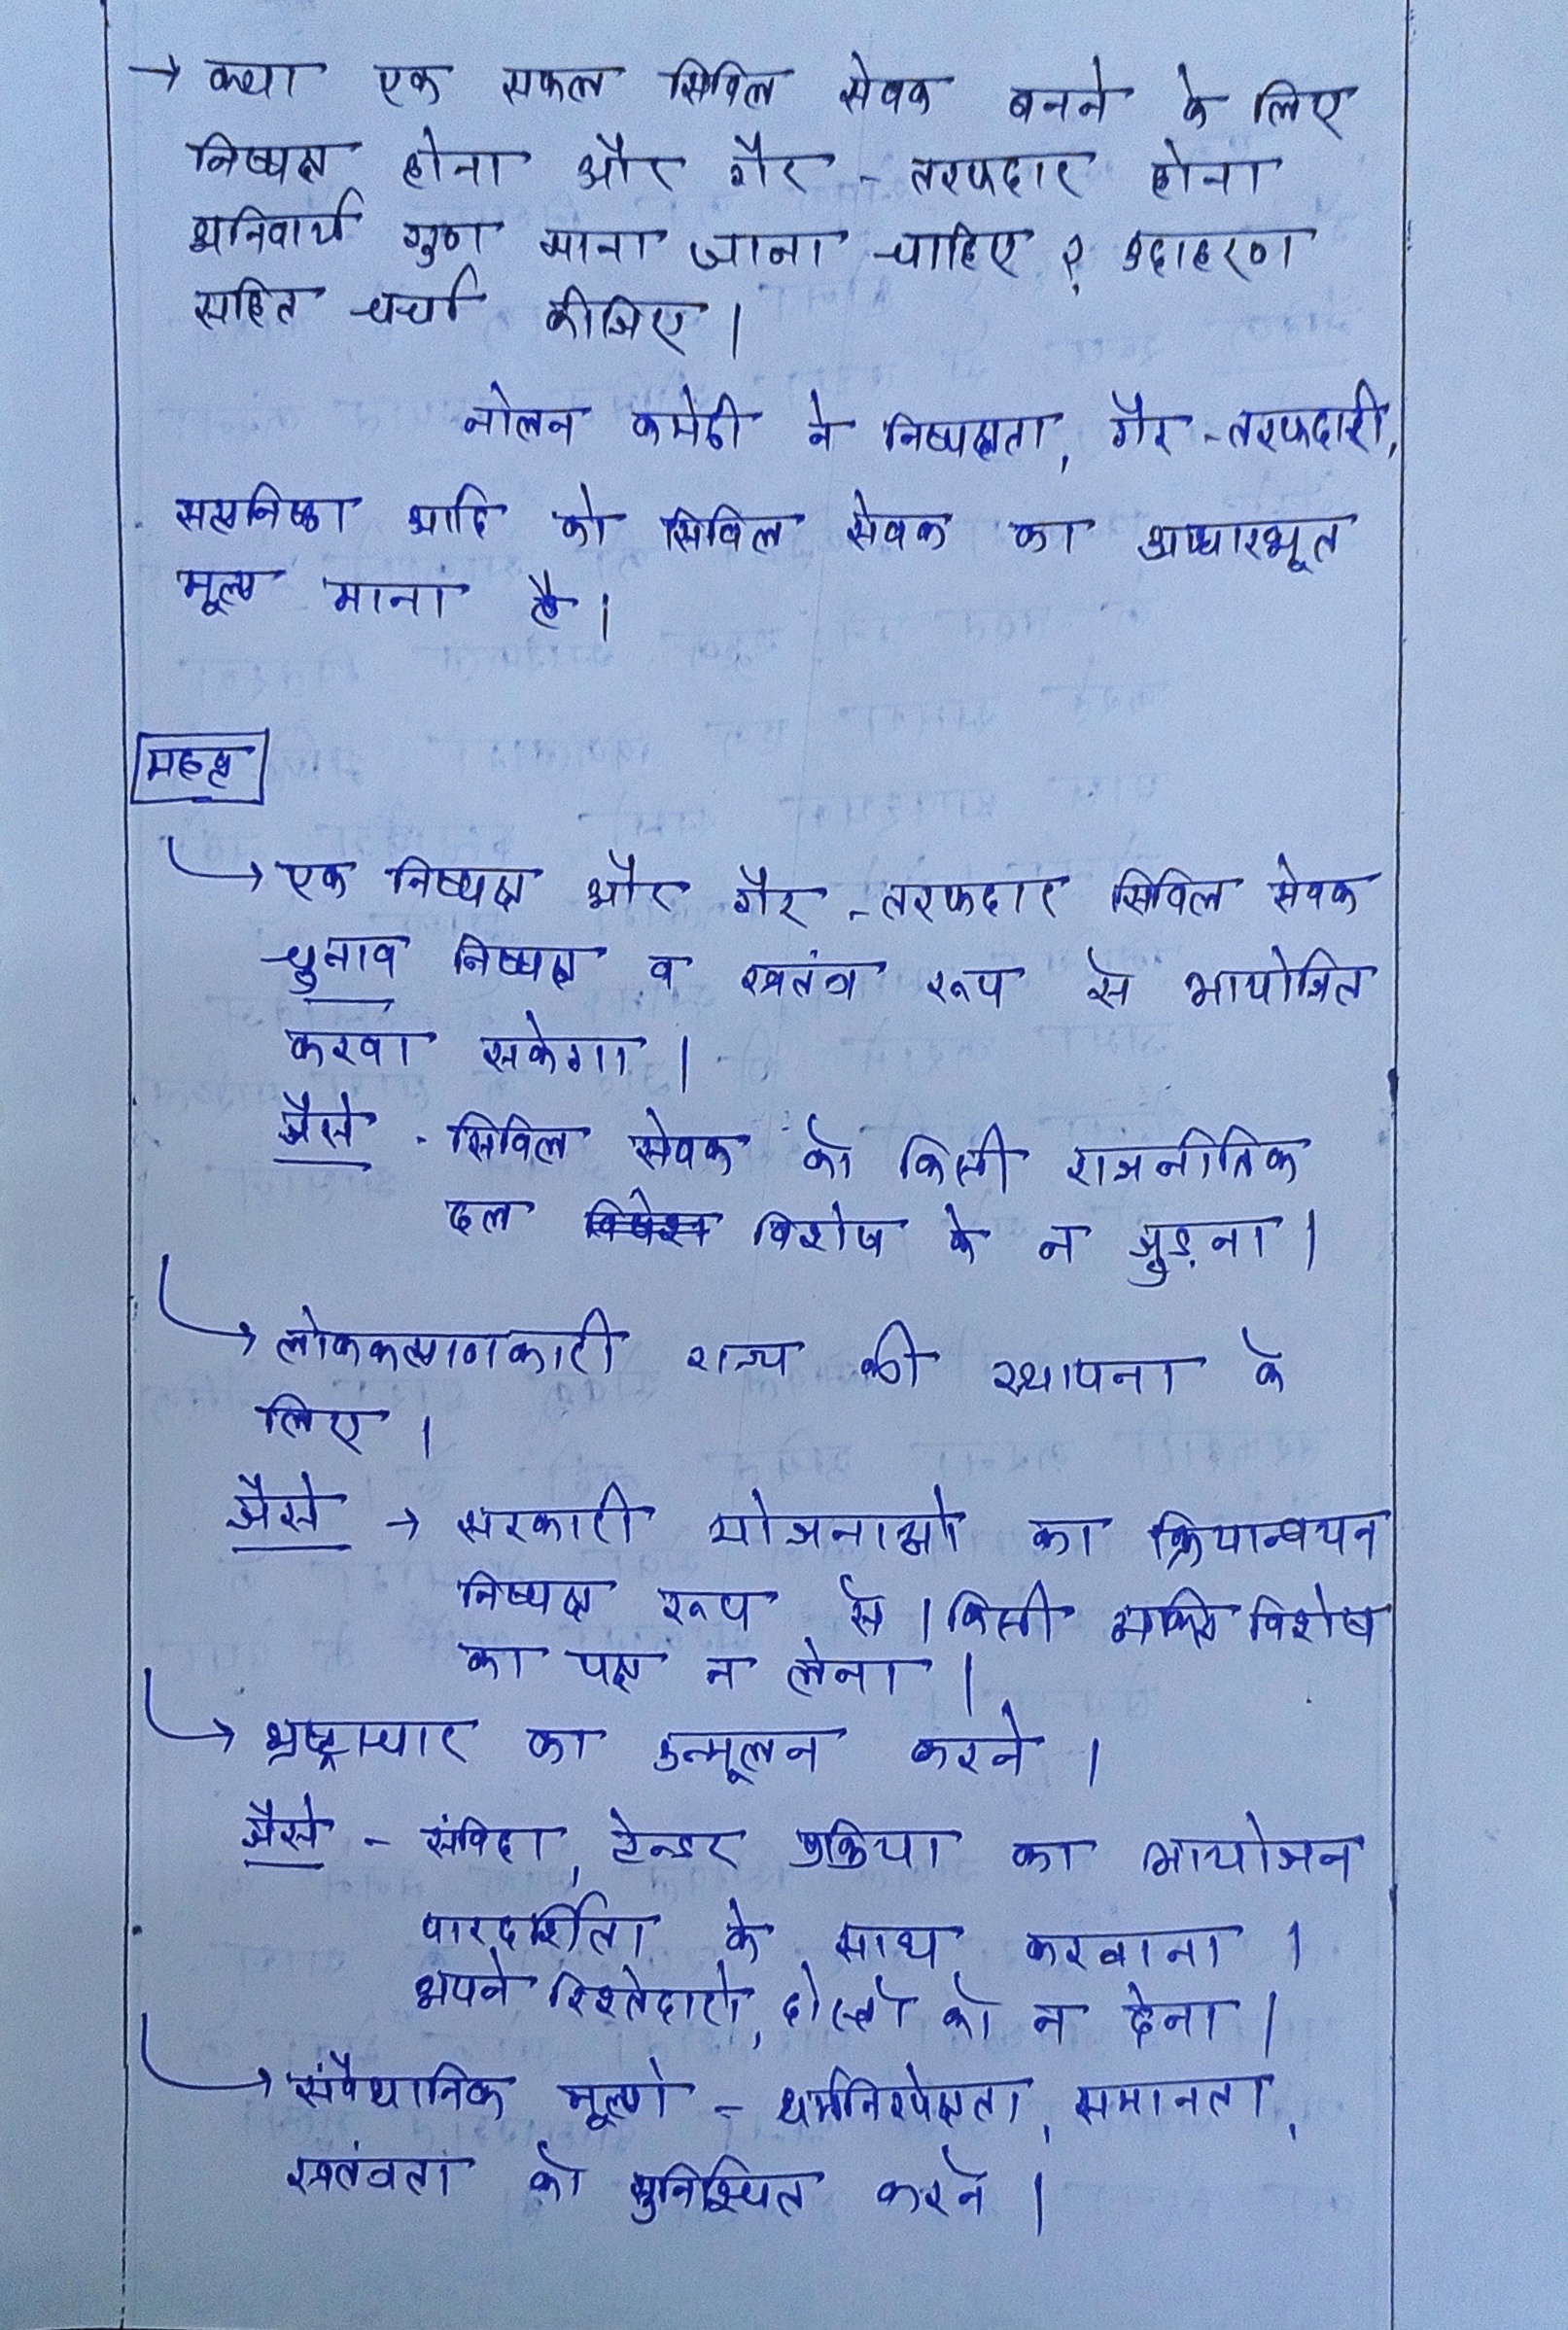 → क्या एक सफल सिविल सेवक बनने के लिए
निष्पक्ष होना और गैर - तरफदार होना
अनिवार्य गुण माना जाना चाहिए ? उदाहरण
सहित चर्चा कीजिए ।
नोलन कमेटी ने निष्पक्षता, गैर - तरफदारी,
सत्यनिष्ठा आदि को सिविल सेवक का आधारभूत
मूल्य माना है ।
महत्व
→ एक निष्पक्ष और गैर - तरफदार सिविल सेवक
चुनाव निष्पक्ष व स्वतंत्र रूप से आयोजित
करवा सकेगा ।
जैसे - सिविल सेवक को किसी राजनीतिक
दल विशेष के न जुड़ना ।
→ लोककल्याणकारी राज्य की स्थापना के
लिए ।
जैसे → सरकारी योजनाओं का क्रियान्वयन
निष्पक्ष रूप से । किसी व्यक्ति विशेष
का पक्ष न लेना ।
→ भ्रष्ट्राचार का उन्मूलन करने ।
जैसे - संविदा, टेन्डर प्रक्रिया का आयोजन
पारदर्शिता के साथ करवाना ।
अपने रिश्तेदारो, दोस्तो को न देना ।
→ संवैधानिक मूल्यो - धर्मनिरपेक्षता, समानता,
स्वतंत्रता को सुनिश्चित करने ।